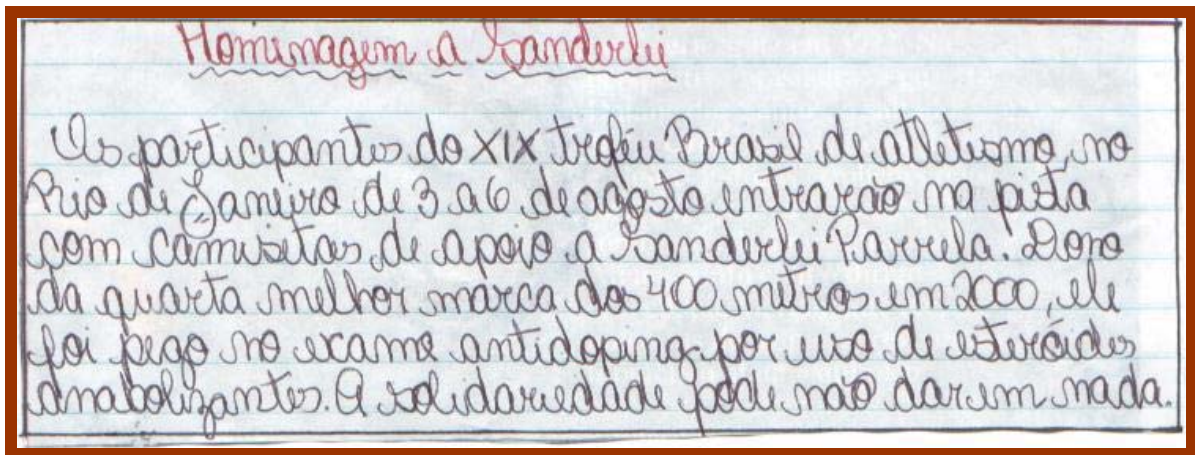 Homenagem a Sanderlei
Os participantes do XIX troféu Brasil de atletismo, no
Rio de Janeiro de 3 a 6 de agosto entrarão na pista
com camisetas de apoio a Sanderlei Parrela. Dono
da quarta melhor marca dos 400 metros em 2000, ele
foi pego no exame antidoping por uso de esteróides
anabolizantes. A solidariedade pode não dar em nada.